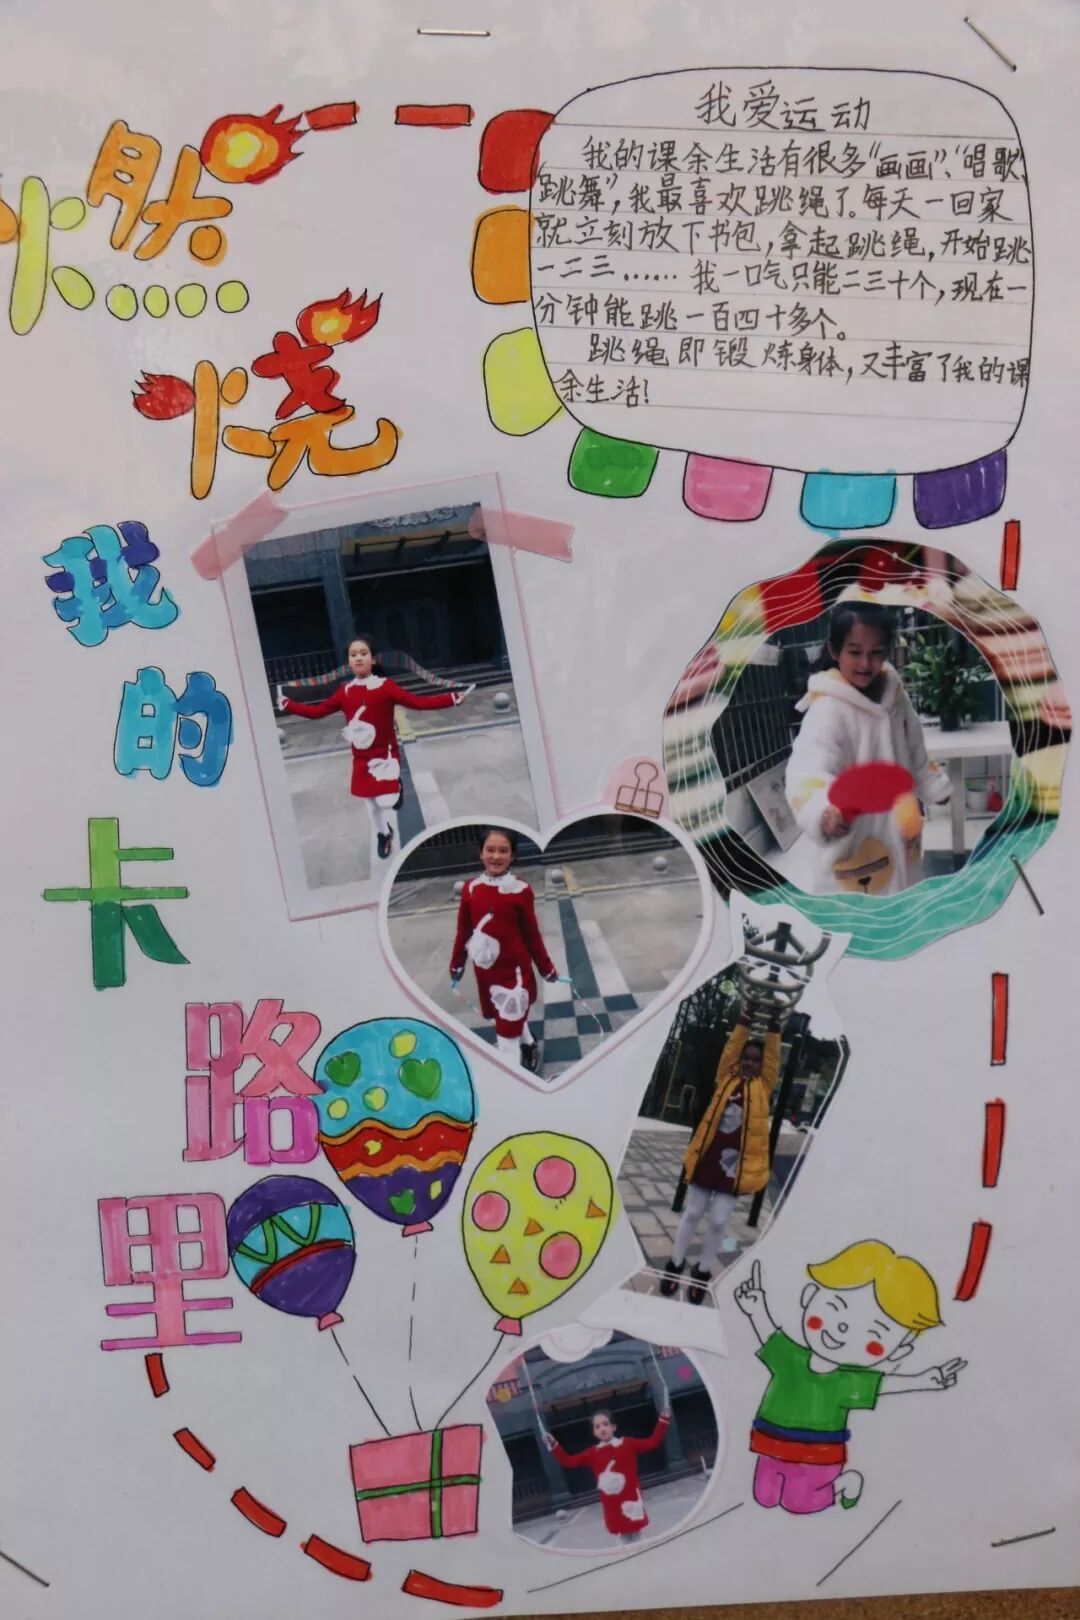 燃
烧
我
的
卡
路
里
我爱运动
我的课余生活有很多“画画”、“唱歌”、
“跳舞”,我最喜欢跳绳了。每天一回家
就立刻放下书包,拿起跳绳,开始跳
一二三……我一口气只能二三十个,现在一
分钟能跳一百四十多个。
跳绳即锻炼身体,又丰富了我的课
余生活!